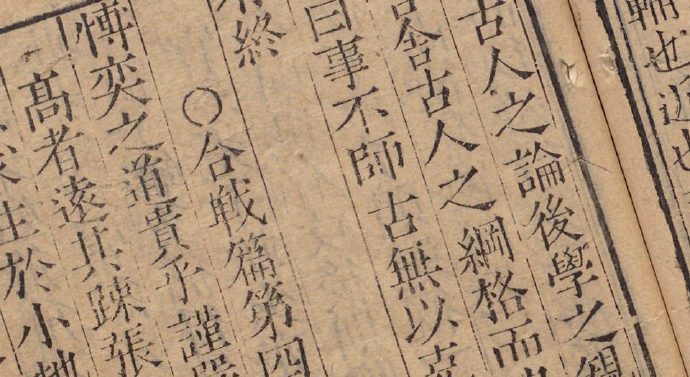 輔也近也
古人之論後學之
舍古人之綱格而
曰事不師古無以
終
○合戦篇第四
愽奕之道貴乎謹
髙者遠其踈張
生於小